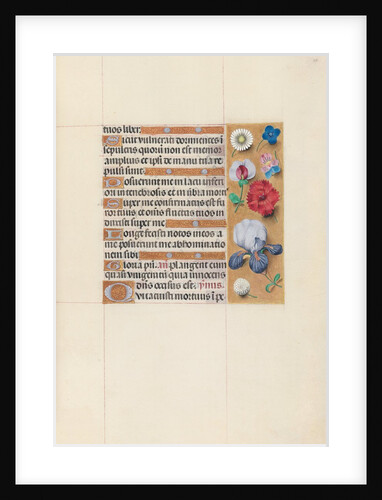 tuos liber.
Sicut vulnerati dormientes i
sepulcris quorū non est memor
amplius et ipsi de manu tua re
pulsi sunt.
Posuerunt me in lacu inferi
ori in tenebrosis et in ūbra mort
Super me confirmatus est fu
ror tuus et oīns fluctus tuos in
duxisti super me.
Longe fecisti notos meos a
me posuerunt me abhominatio
nem sibi.
Gloria pr̄i. añ Plangent eum
quasi unigenitū quia innocens
dn̄s occisus est.